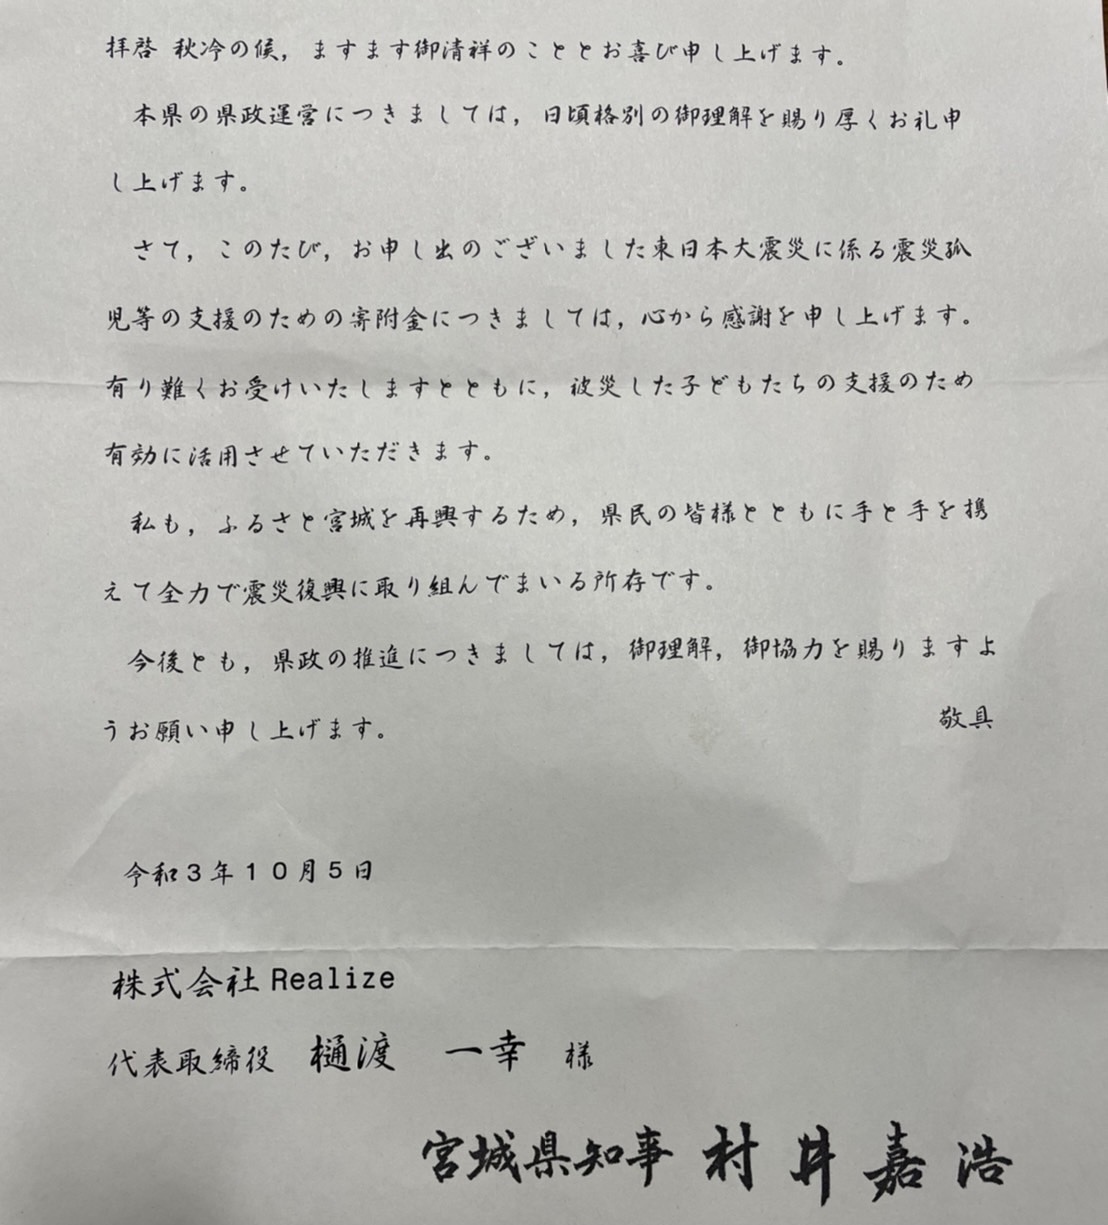 拝啓 秋冷の候，ますます御清祥のこととお喜び申し上げます。
本県の県政運営につきましては，日頃格別の御理解を賜り厚くお礼申
し上げます。
さて，このたび，お申し出のございました東日本大震災に係る震災孤
児等の支援のための寄附金につきましては，心から感謝を申し上げます。
有り難くお受けいたしますとともに，被災した子どもたちの支援のため
有効に活用させていただきます。
私も，ふるさと宮城を再興するため，県民の皆様とともに手と手を携
えて全力で震災復興に取り組んでまいる所存です。
今後とも，県政の推進につきましては，御理解，御協力を賜りますよ
うお願い申し上げます。
敬具
令和３年１０月５日
株式会社Realize
代表取締役 樋渡 一幸 様
宮城県知事 村井嘉浩